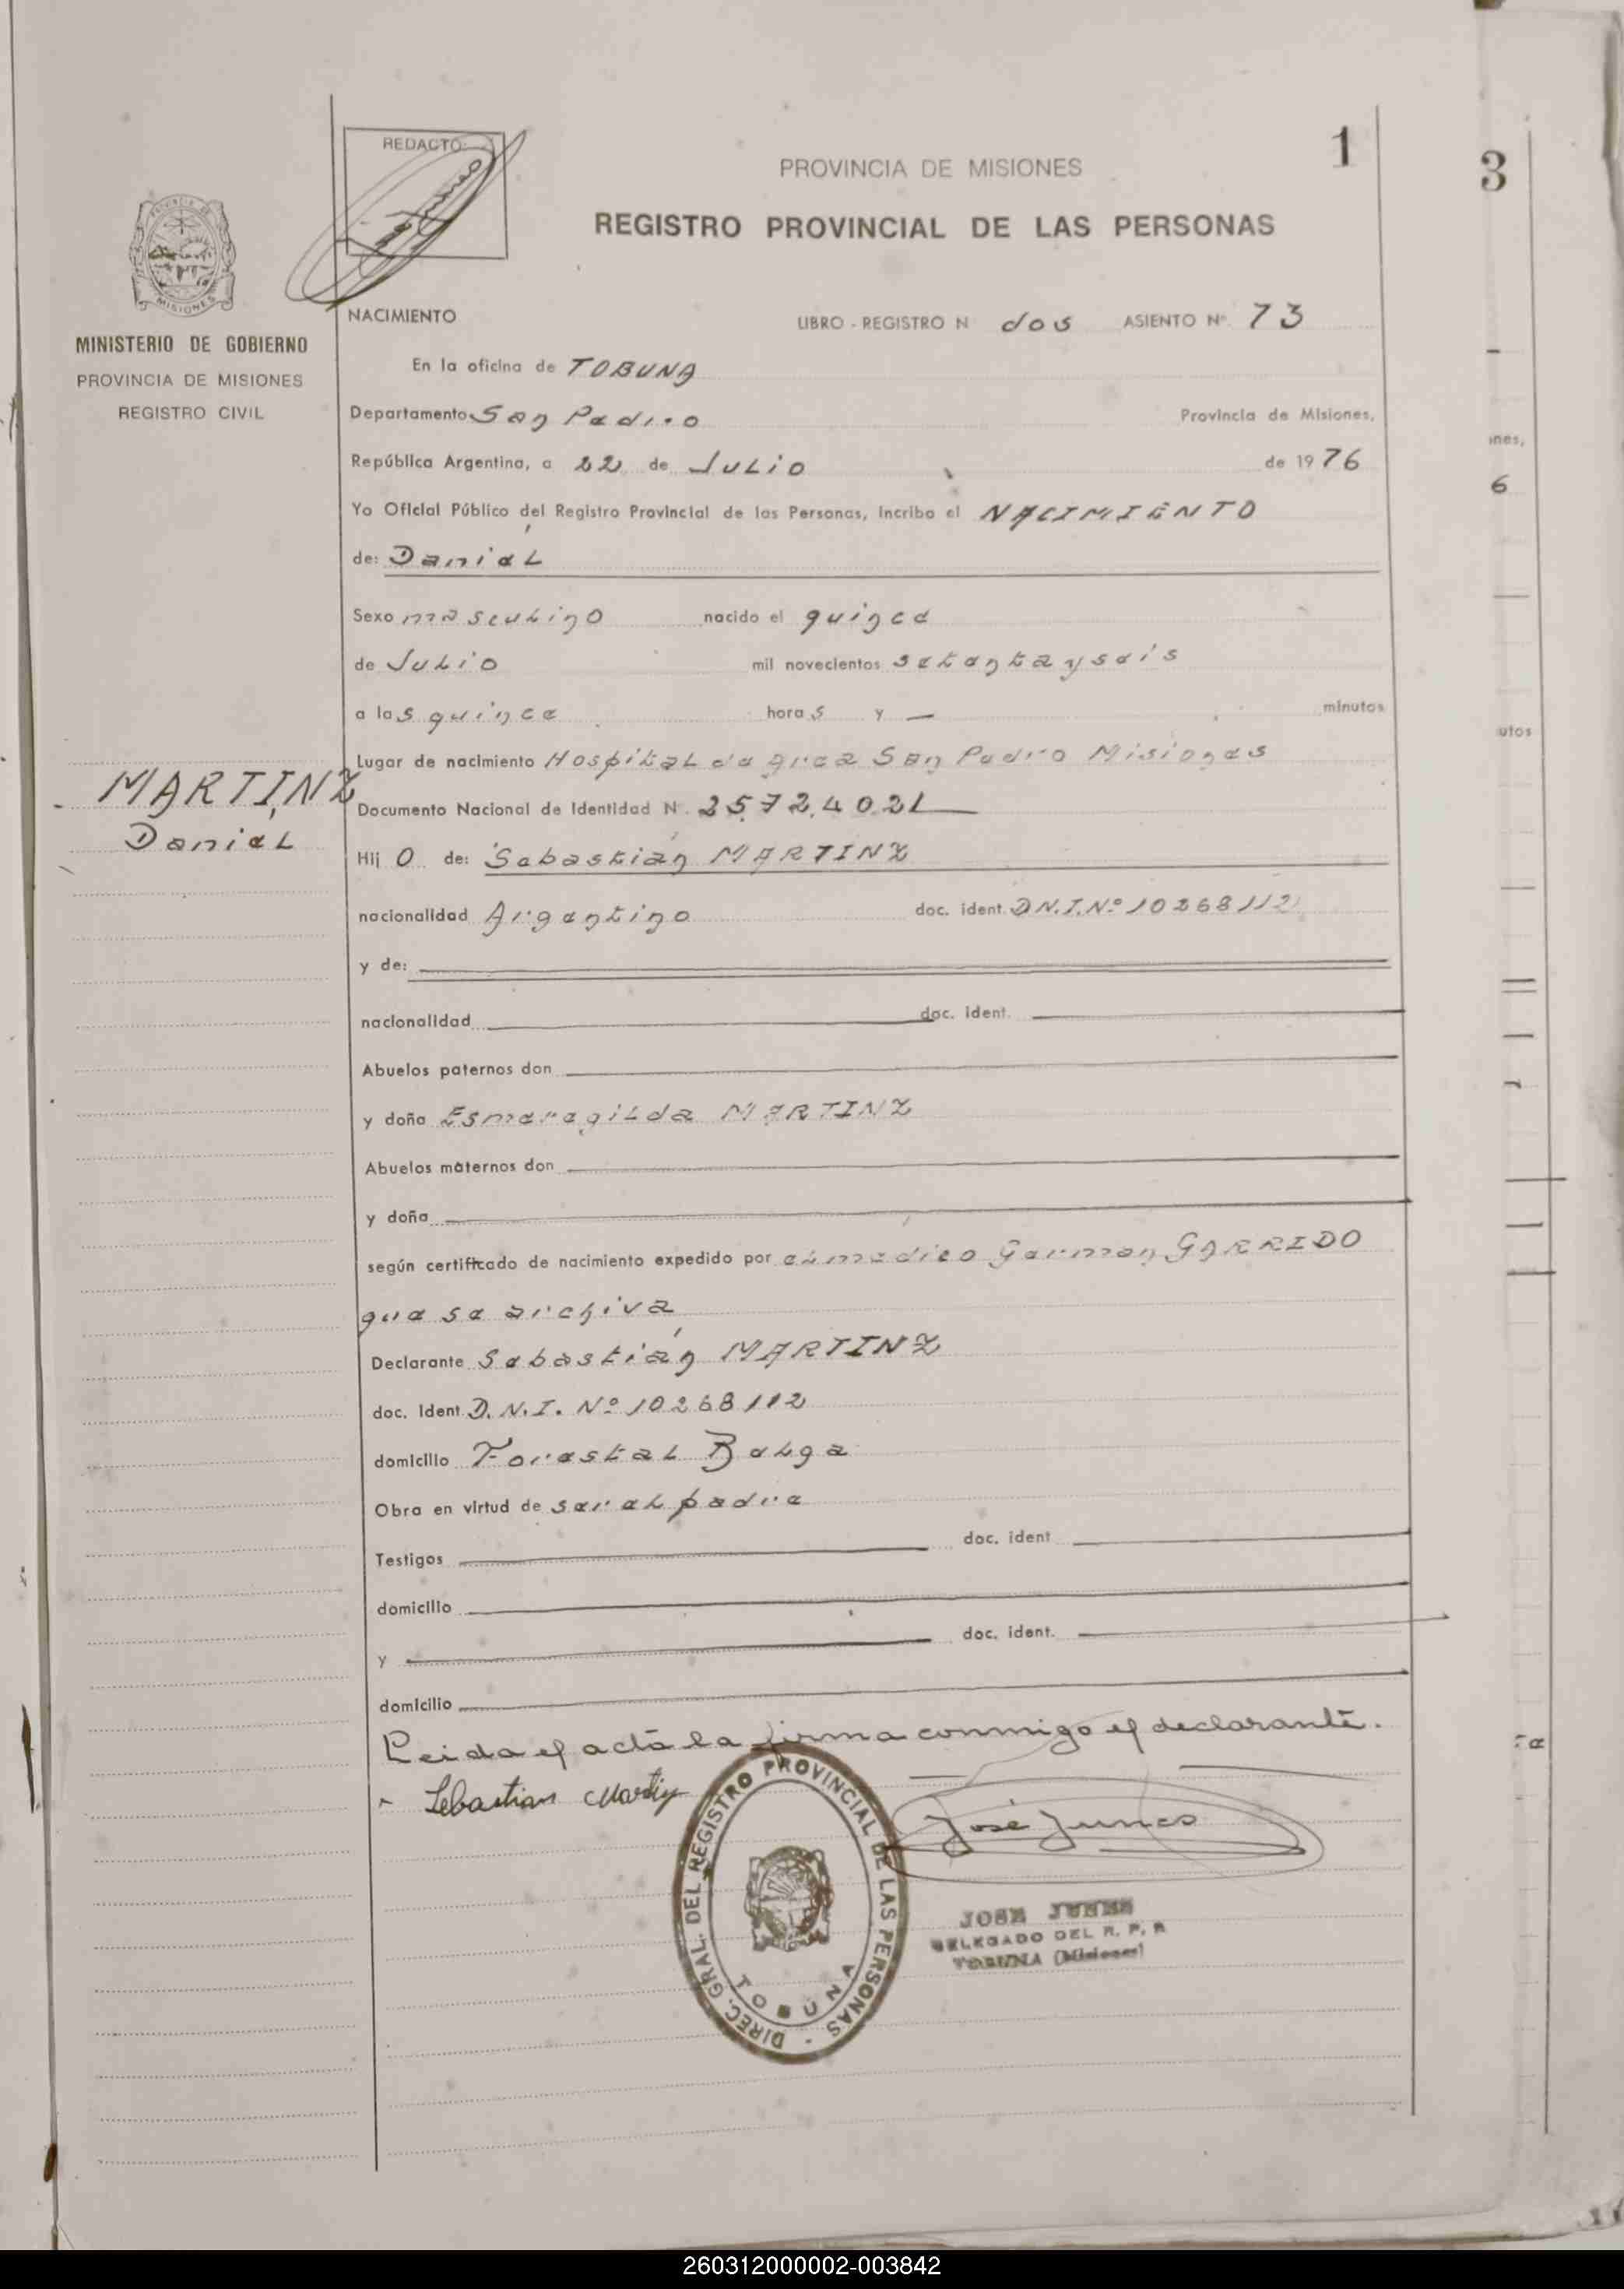 REDACTO:
PROVINCIA DE MISIONES
1
3
REGISTRO PROVINCIAL DE LAS PERSONAS
MISIONES
MINISTERIO DE GOBIERNO
PROVINCIA DE MISIONES
REGISTRO CIVIL
NACIMIENTO
LIBRO - REGISTRO N dos ASIENTO Nº 73
En la oficina de TOBUNA
Departamento San Pedro Provincia de Misiones,
ines,
República Argentina, a 22 de JULIO de 1976
6
Yo Oficial Público del Registro Provincial de las Personas, incribo el NACIMIENTO
de: Daniel
Sexo masculino nacido el quince
de Julio mil novecientos setenta y seis
a las quince horas y — minutos
utos
Lugar de nacimiento Hospital de area San Pedro Misiones
MARTINZ
Daniel
Documento Nacional de Identidad N. 25.724.021
Hij o de: Sebastián MARTINZ
nacionalidad Argentino doc. ident. D.N.I.Nº 10268112
y de:
nacionalidad doc. ident.
Abuelos paternos don
y doña Esmeragilda MARTINZ
Abuelos maternos don
y doña
según certificado de nacimiento expedido por el medico German GARRIDO
que se archiva
Declarante Sebastián MARTINZ
doc. Ident D.N.I. Nº 10268112
domicilio Forestal Belga
Obra en virtud de ser el padre
Testigos doc. ident
domicilio
y doc. ident.
domicilio
Leida el acta la firma conmigo el declarante.
Sebastian Martin
José Junes
DIREC. GRAL. DEL REGISTRO PROVINCIAL DE LAS PERSONAS -
TOBUNA
JOSE JUNES
DELEGADO DEL R. P. P.
TOBUNA (Misiones)
260312000002-003842